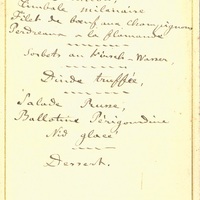 Timbale milanaise
Filet de bœuf aux champignons
Perdreaux à la flamande
Sorbets au Kirsch-Wasser
Dinde truffée,
Salade Russe,
Ballotine Périgourdine
Nid glacé
Dessert.